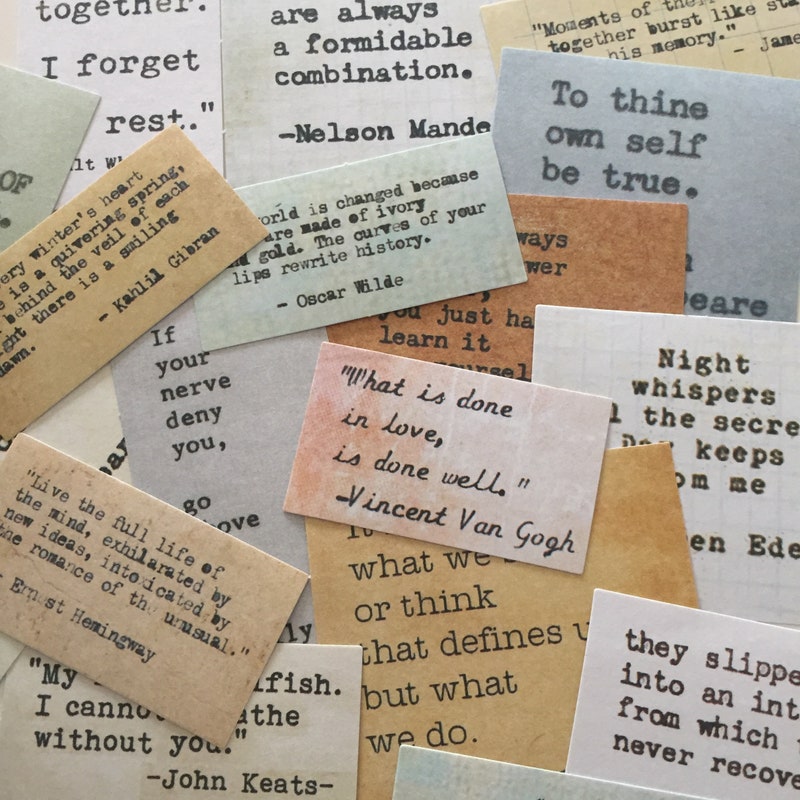 together.
I forget
rest."
are always
a formidable
combination.
-Nelson Mande
"Moments of
together burst like
his memory."
- Jame
To thine
own self
be true.
peare
OF
winter's heart
is a quivering spring,
behind the veil of each
there is a smiling
dawn.
- Kahlil Gibran
is changed because
are made of ivory
gold. The curves of your
lips rewrite history.
- Oscar Wilde
just ha
learn it
Night
whispers
the secre
keeps
me
en Ede
If
your
nerve
deny
you,
go
"What is done
in love,
is done well."
-Vincent Van Gogh
"Live the full life of
the mind, exhilarated by
new ideas, intoxicated by
the romance of the unusual."
- Ernest Hemingway
what we
or think
that defines u
but what
we do.
"My
lfish.
I cannot
athe
without you."
-John Keats-
they slippe
into an int
from which
never recove